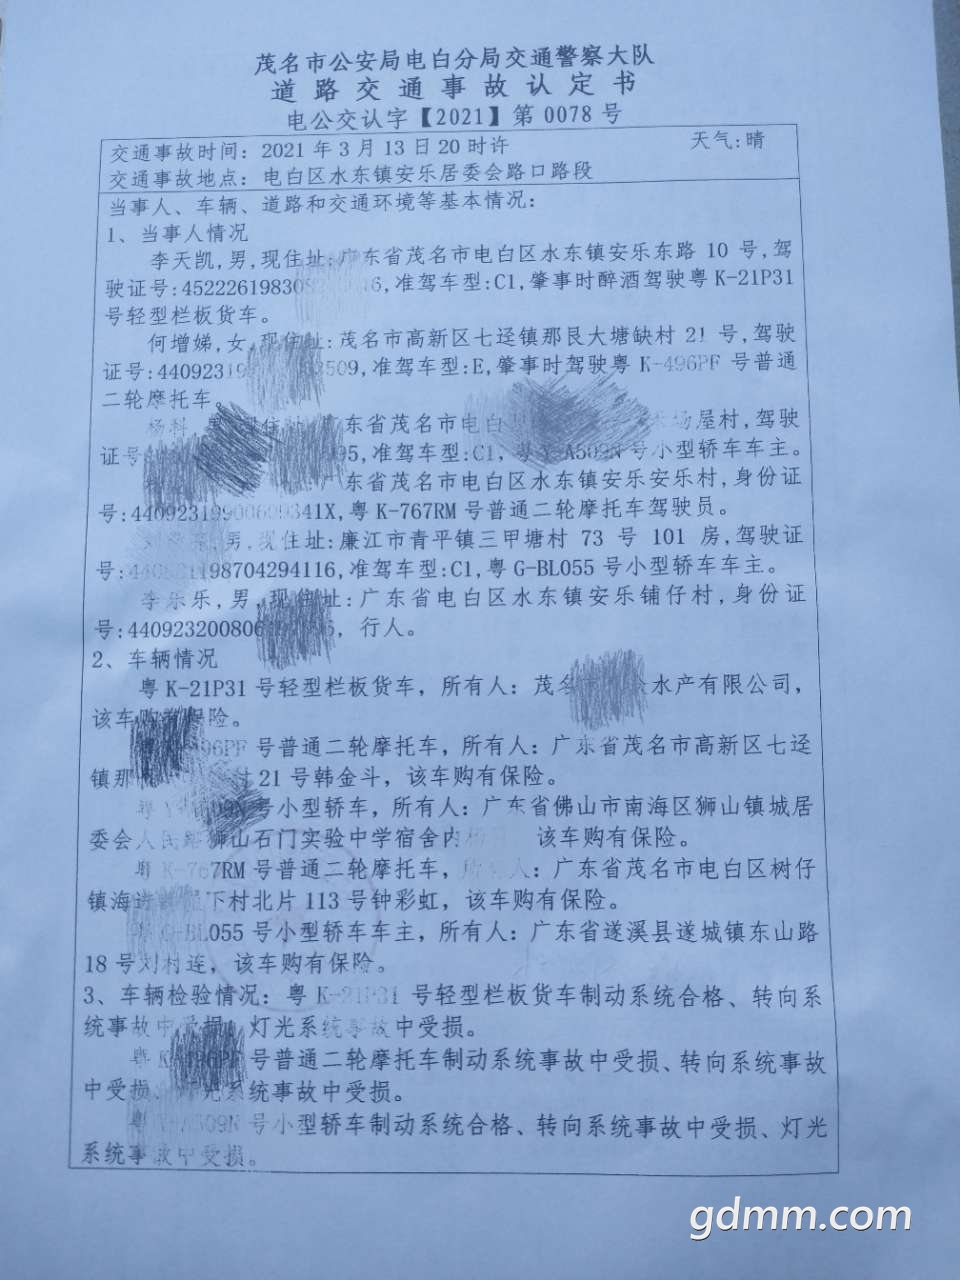 茂名市公安局电白分局交通警察大队
道路交通事故认定书
电公交认字【2021】第 0078 号
交通事故时间：2021 年 3 月 13 日 20 时许 天气:晴
交通事故地点：电白区水东镇安乐居委会路口路段
当事人、车辆、道路和交通环境等基本情况：
1、当事人情况
李天凯,男,现住址:广东省茂名市电白区水东镇安乐东路 10 号,驾
驶证号:准驾车型:C1,肇事时醉酒驾驶粤 K-21P31
号轻型栏板货车。
何增娣,女,现住址:茂名市高新区七迳镇那艮大塘缺村 21 号,驾驶
证号:准驾车型:E,肇事时驾驶粤 K-496PF 号普通
二轮摩托车。
东省茂名市电白 场屋村,驾驶
证号 准驾车型:C1, 号小型轿车车主。
东省茂名市电白区水东镇安乐安乐村,身份证
号: 粤 K-767RM 号普通二轮摩托车驾驶员。
男,现住址:廉江市青平镇三甲塘村 73 号 101 房,驾驶证
号: 准驾车型:C1,粤 G-BL055 号小型轿车车主。
李乐乐,男,现住址:广东省电白区水东镇安乐铺仔村,身份证
号: 行人。
2、车辆情况
粤 K-21P31 号轻型栏板货车，所有人：茂名 水产有限公司，
该车购有保险。
号普通二轮摩托车，所有人：广东省茂名市高新区七迳
镇那 村 21 号韩金斗，该车购有保险。
号小型轿车，所有人：广东省佛山市南海区狮山镇城居
委会人民路狮山石门实验中学宿舍内 该车购有保险。
粤 K-767RM 号普通二轮摩托车，所有人：广东省茂名市电白区树仔
镇海 下村北片 113 号钟彩虹，该车购有保险。
粤 G-BL055 号小型轿车车主，所有人：广东省遂溪县遂城镇东山路
18 号刘村连，该车购有保险。
3、车辆检验情况：粤 K-21P31 号轻型栏板货车制动系统合格、转向系
统事故中受损、灯光系统事故中受损。
粤 K-496PF 号普通二轮摩托车制动系统事故中受损、转向系统事故
中受损、灯光系统事故中受损。
粤 号小型轿车制动系统合格、转向系统事故中受损、灯光
系统事故中受损。
gdmm.com